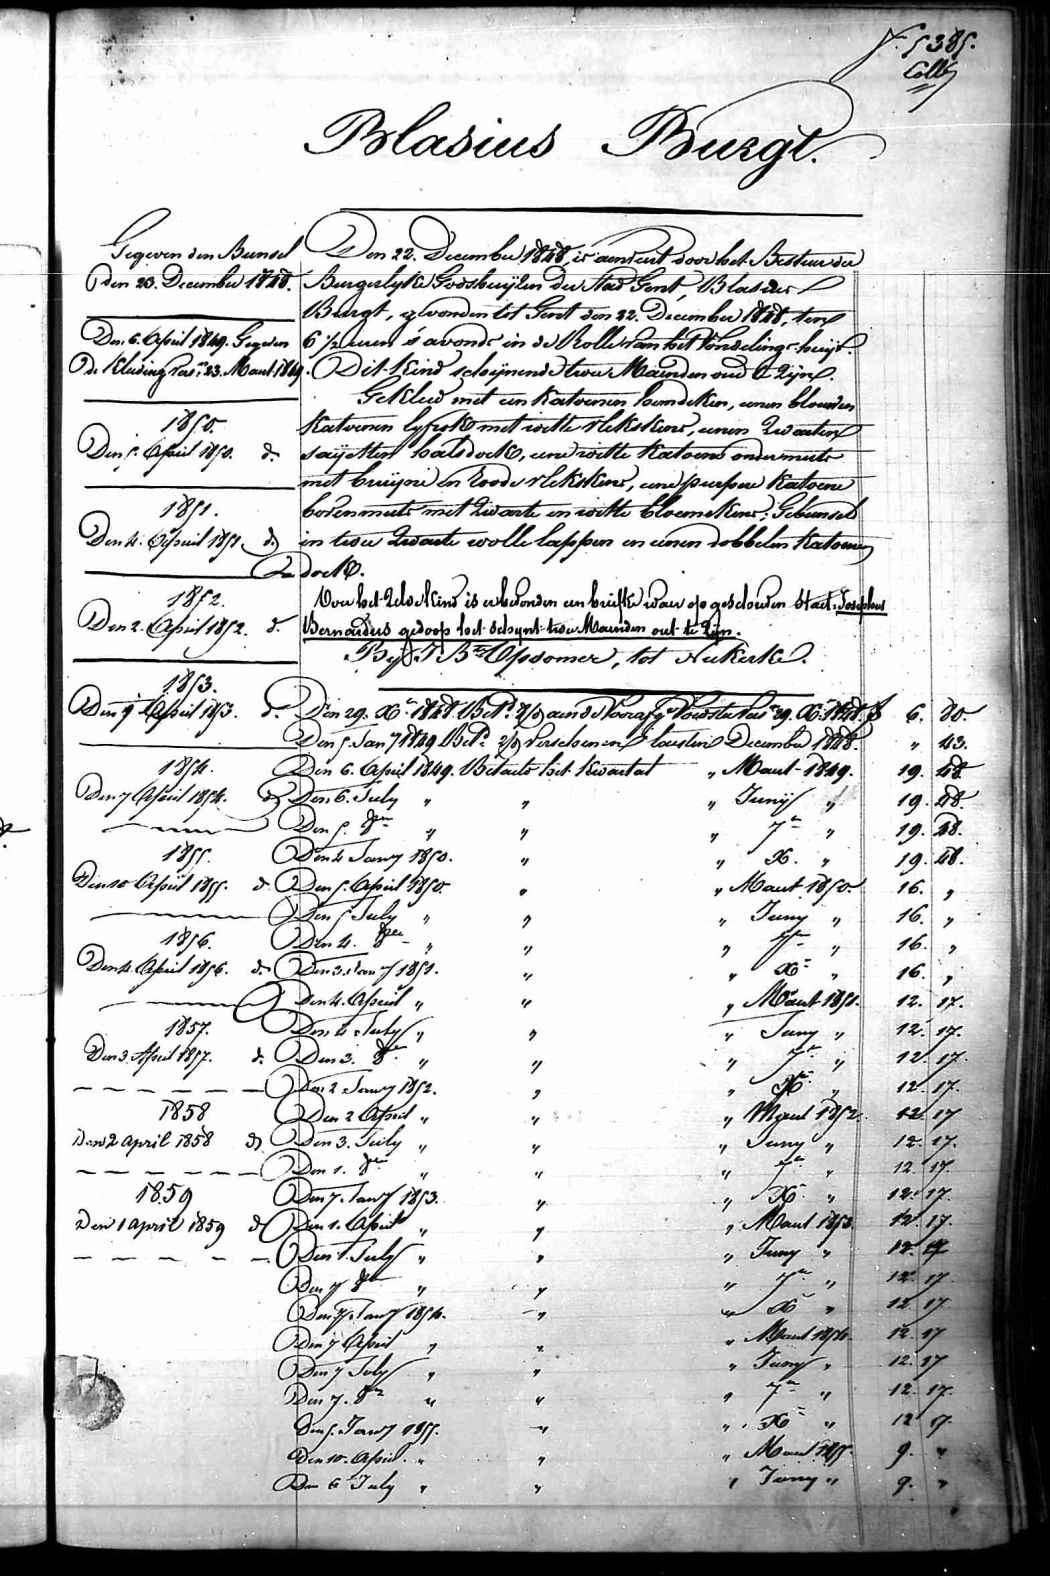 N. 5385.
Blasius Burgt.
Gegeven den Bunsel
den 23. December 1848.
Den 6. April 1849. Gegeven
de Kleding
1850.
Den 5. April 1850. do
1851.
Den 4. April 1851. do
1852.
Den 2. April 1852. do
1853.
April 1853. do
1854.
Den 7 April 1854. do
1855.
Den 10 April 1855. do
1856.
Den 4. April 1856. do
1857.
Den 3. April 1857. do
1858
Den 2 april 1858 do
1859
Den 1 april 1859 do
Den 22. December 1848, is aanveirt door het Bestuur der
Burgerlyke Godshuyzen der stad Gent, Blasius
Burgt, gevonden tot Gent den 22. December 1848, ten
6 1/2 uren s'avonds in de Rolle van het Vondelings-huys.
Dit Kind schynende twee Maenden oud te zyn.
Gekleed met een Katoenen hemdeken, eenen blauwen
Katoenen lyfrok met witte vlekskens, eenen zwarten
sayetten halsdoek, eene witte Katoene ondermuts
met bruyne en roode vlekskens, eene purpere Katoene
bovenmuts met zwarte en witte bloemekens; Gebunseld
in twee zwarte wolle lappen en eenen dobbelen Katoenen
doek.
Voor het zelve kind is gevonden een briefke waer op geschreven staet: Josephus
Bernardus gedoop het schynt twee Maenden out te zyn.
By J. Bte Opsomer, tot Nukerke.
Den 29. Xr 1848 Bete 29. Xr 1848. f 6. 80.
Den 5. Jany 1849 Bete verschenen December 1848. " 43.
Den 6. April 1849. Betaelt het Kwartael " Maart 1849. 19. 48.
Den 6. July " " " Juny " 19. 48.
Den 5. 8ber " " " 7r " 19. 48.
Den 4 Jany 1850. " " X. " 19. 48.
Den 5. April 1850. " " Maart 1850. 16. "
Den 5 July " " " Juny " 16. "
Den 4. 8ber " " " 7r " 16. "
Den 3. Jany 1851. " " Xr " 16. "
Den 4. April " " " Maart 1851. 12. 17.
Den 4 July " " " Juny " 12. 17.
Den 3. 8r " " " 7r " 12. 17.
Den 2 Jany 1852. " " Xr " 12. 17.
Den 2 April " " " Maart 1852. 12 17
Den 3. July " " " Juny " 12. 17.
Den 1. 8ber " " " 7r " 12 17.
Den 7. Jany 1853. " " Xr " 12. 17.
Den 1. April " " " Maart 1853. 12. 17.
Den 1. July " " " Juny " 12. 17
Den 7 8ber " " " 7r " 12 17
Jany 1854. " " X " 12 17
Den 7 April " " " Maart 1854. 12. 17
Den 7 July " " " Juny " 12. 17
Den 7. 8r " " " 7r " 12. 17.
Den 5. Jany 1855. " " Xr " 12 17.
Den 10. April. " " " Maart 1855. 9. "
Den 6 July " " " Juny " 9. "